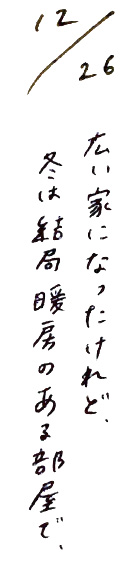 12/26
広い家になったけれど、
冬は結局暖房のある部屋で、